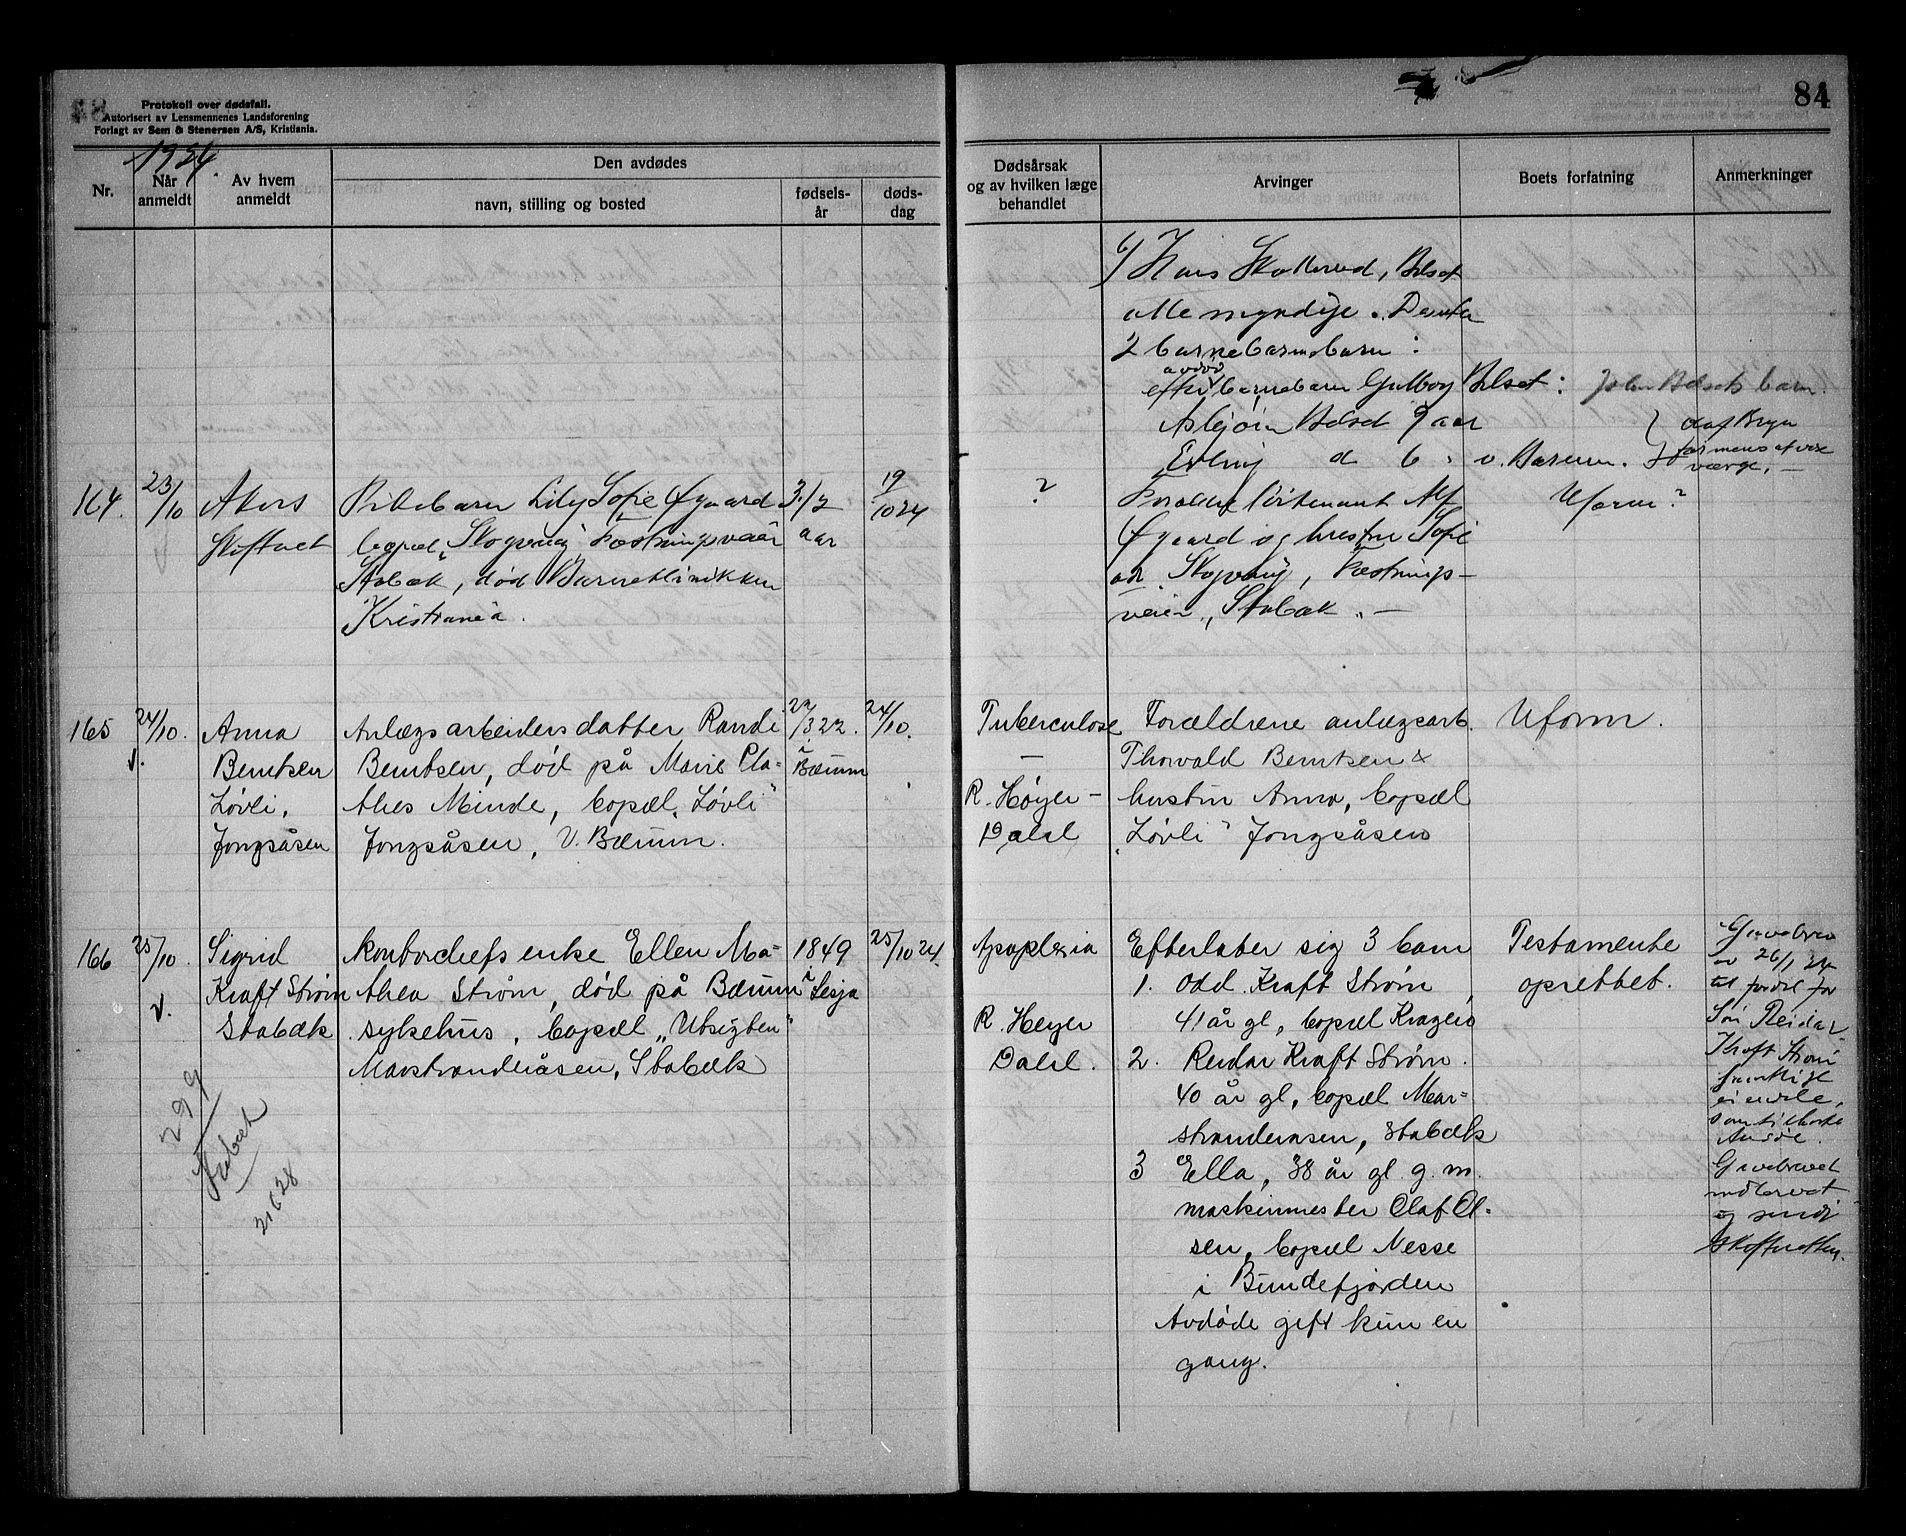 84
Protokoll over dødsfall.
Autorisert av Lensmennenes Landsforening
Forlagt av Sem & Stenersen A/S, Kristiania.
1924.
Nr.
Når anmeldt
Av hvem anmeldt
Den avdødes
navn, stilling og bosted
fødsels-år
døds-dag
Dødsårsak
og av hvilken læge
behandlet
Arvinger
Boets forfatning
Anmerkninger
6/ Hans Skollerud, Belset
alle myndige. Desuten
2 barnebarnsbarn :
avdød
efter barnebarn Gulborg Belset :
Asbjørn Belset 9 aar
Erling d 6 " v. Bærum.
164.
23/10
Akers
Skifteret
Pikebarn Lily Sofie Øgaard
bopæl "Skogveng" Fæstningsveien
Stabæk, død Barneklinikken
Kristiania.
3 1/2
aar
19/10 24
?
Forældre løitenant Alf
Øgaard og hustru Sofie
Skogveng, Fæstnings-
veien, Stabæk. —
Uform?
165
24/10.
v.
Anna
Berntsen
Løvli,
Jongsåsen
Anlægsarbeiders datter Randi
Berntsen, død på Marie Pla-
thes Minde, bopæl "Løvli"
Jongsåsen, V. Bærum.
22/3 22.
i
Bærum
24/10.
Tuberculose
—
R. Høyer -
Dahl
Forældrene anlægsarb.
Thorvald Berntsen &
hustru Anna, bopæl
"Løvli" Jongsåsen
Uform.
166
25/10.
v.
Sigrid
Kraft Strøm
Stabæk
Kontorchefs enke Ellen Ma-
thea Strøm, død på Bærum
sykehus, bopæl "Utsigten"
Marstranderåsen, Stabæk
1849
i
Lesja
25/10 24.
Apoplexia
R. Høyer
Dahl.
Efterlater sig 3 barn
1. Odd Kraft Strøm,
41 år gl, bopæl Kragerø
2. Reidar Kraft Strøm.
40 år gl, bopæl Mar-
stranderåsen, Stabæk
3 Ella, 38 år gl. g. m.
maskinmester Olaf Ol-
sen, bopæl Nesse
i Bundefjorden
Avdøde gift kun en
gang.
Testamente
oprettet.
Gavebrev
av 26/1 24
til fordel for
Søn Reidar
Kraft Strøm
Gavebrevet
og sendt
Skifteretten.
299
Stabæk
21628